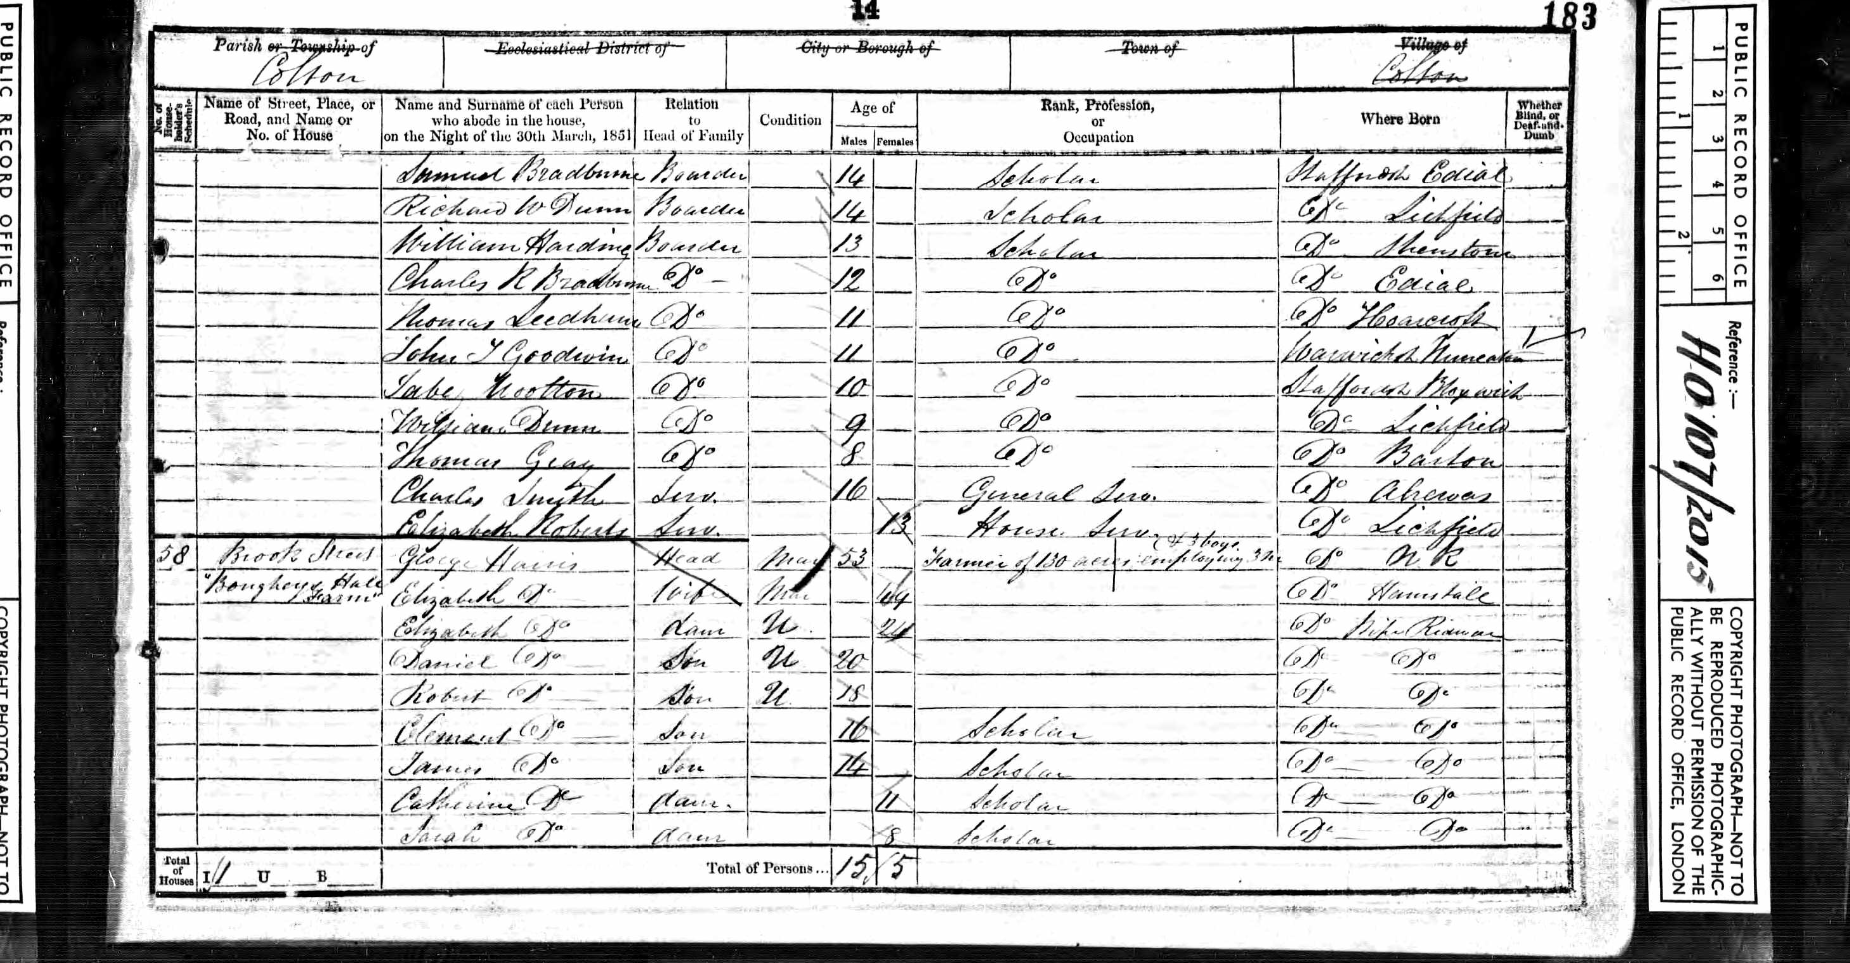 14
183
Parish or Township of Ecclesiastical District of City or Borough of Town of Village of
Colton Colton
No. of House-holder's Schedule
Name of Street, Place, or Road, and Name or No. of House
Name and Surname of each Person who abode in the house, on the Night of the 30th March, 1851
Relation to Head of Family
Condition
Age of
Males Females
Rank, Profession, or Occupation
Where Born
Whether Blind, or Deaf-and-Dumb
Samuel Bradburne Boarder 14 Scholar Staffordsh Edial
Richard W Dunn Boarder 14 Scholar Do Lichfield
William Harding Boarder 13 Scholar Do Shenstone
Charles R Bradburne Do 12 Do Do Edial
Thomas Leedham Do 11 Do Do Hoarcroft
John T Goodwin Do 11 Do Warwicksh Nuneaton
Wootton Do 10 Do Staffordsh Bloxwich
William Dunn Do 9 Do Do Lichfield
Thomas Gray Do 8 Do Do Barton
Charles Smith Serv. 16 General Serv. Do Alrewas
Elizabeth Roberts Serv. 13 House Serv. Do Lichfield
58 Brook Street George Harris Head Mar 53 Farmer of 130 acres employing 3 & 3 boys Do N K
Hall Farm" Elizabeth Do Wife Mar 44 Do Hamstall
Elizabeth Do Daur U 24 Do Pipe Ridware
Daniel Do Son U 20 Do Do
Robert Do Son U 18 Do Do
Clement Do Son 16 Scholar Do Do
James Do Son 14 Scholar Do Do
Catherine Do daur. 11 Scholar Do Do
Sarah Do daur 8 Scholar Do Do
Total of Houses I 1 U B Total of Persons... 15 5
PUBLIC RECORD OFFICE
1 2 3 4 5 6
1 2
Reference :—
HO 107/2015
COPYRIGHT PHOTOGRAPH—NOT TO
BE REPRODUCED PHOTOGRAPHIC-
ALLY WITHOUT PERMISSION OF THE
PUBLIC RECORD OFFICE, LONDON
PUBLIC RECORD OFFICE
Reference :
COPYRIGHT PHOTOGRAPH—NOT TO